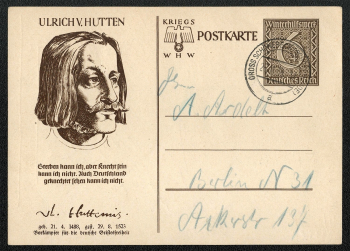 ULRICH V. HUTTEN
KRIEGS
WHW
POSTKARTE
Winterhilfswerk
6
Deutsches Reich
GROSS SCH
a
Sterben kann ich, aber Knecht sein
kann ich nicht. Auch Deutschland
geknechtet sehen kann ich nicht.
geb. 21. 4. 1488, gest. 29. 8. 1523
Vorkämpfer für die deutsche Geistesfreiheit
A. Ardelt
Berlin N 31